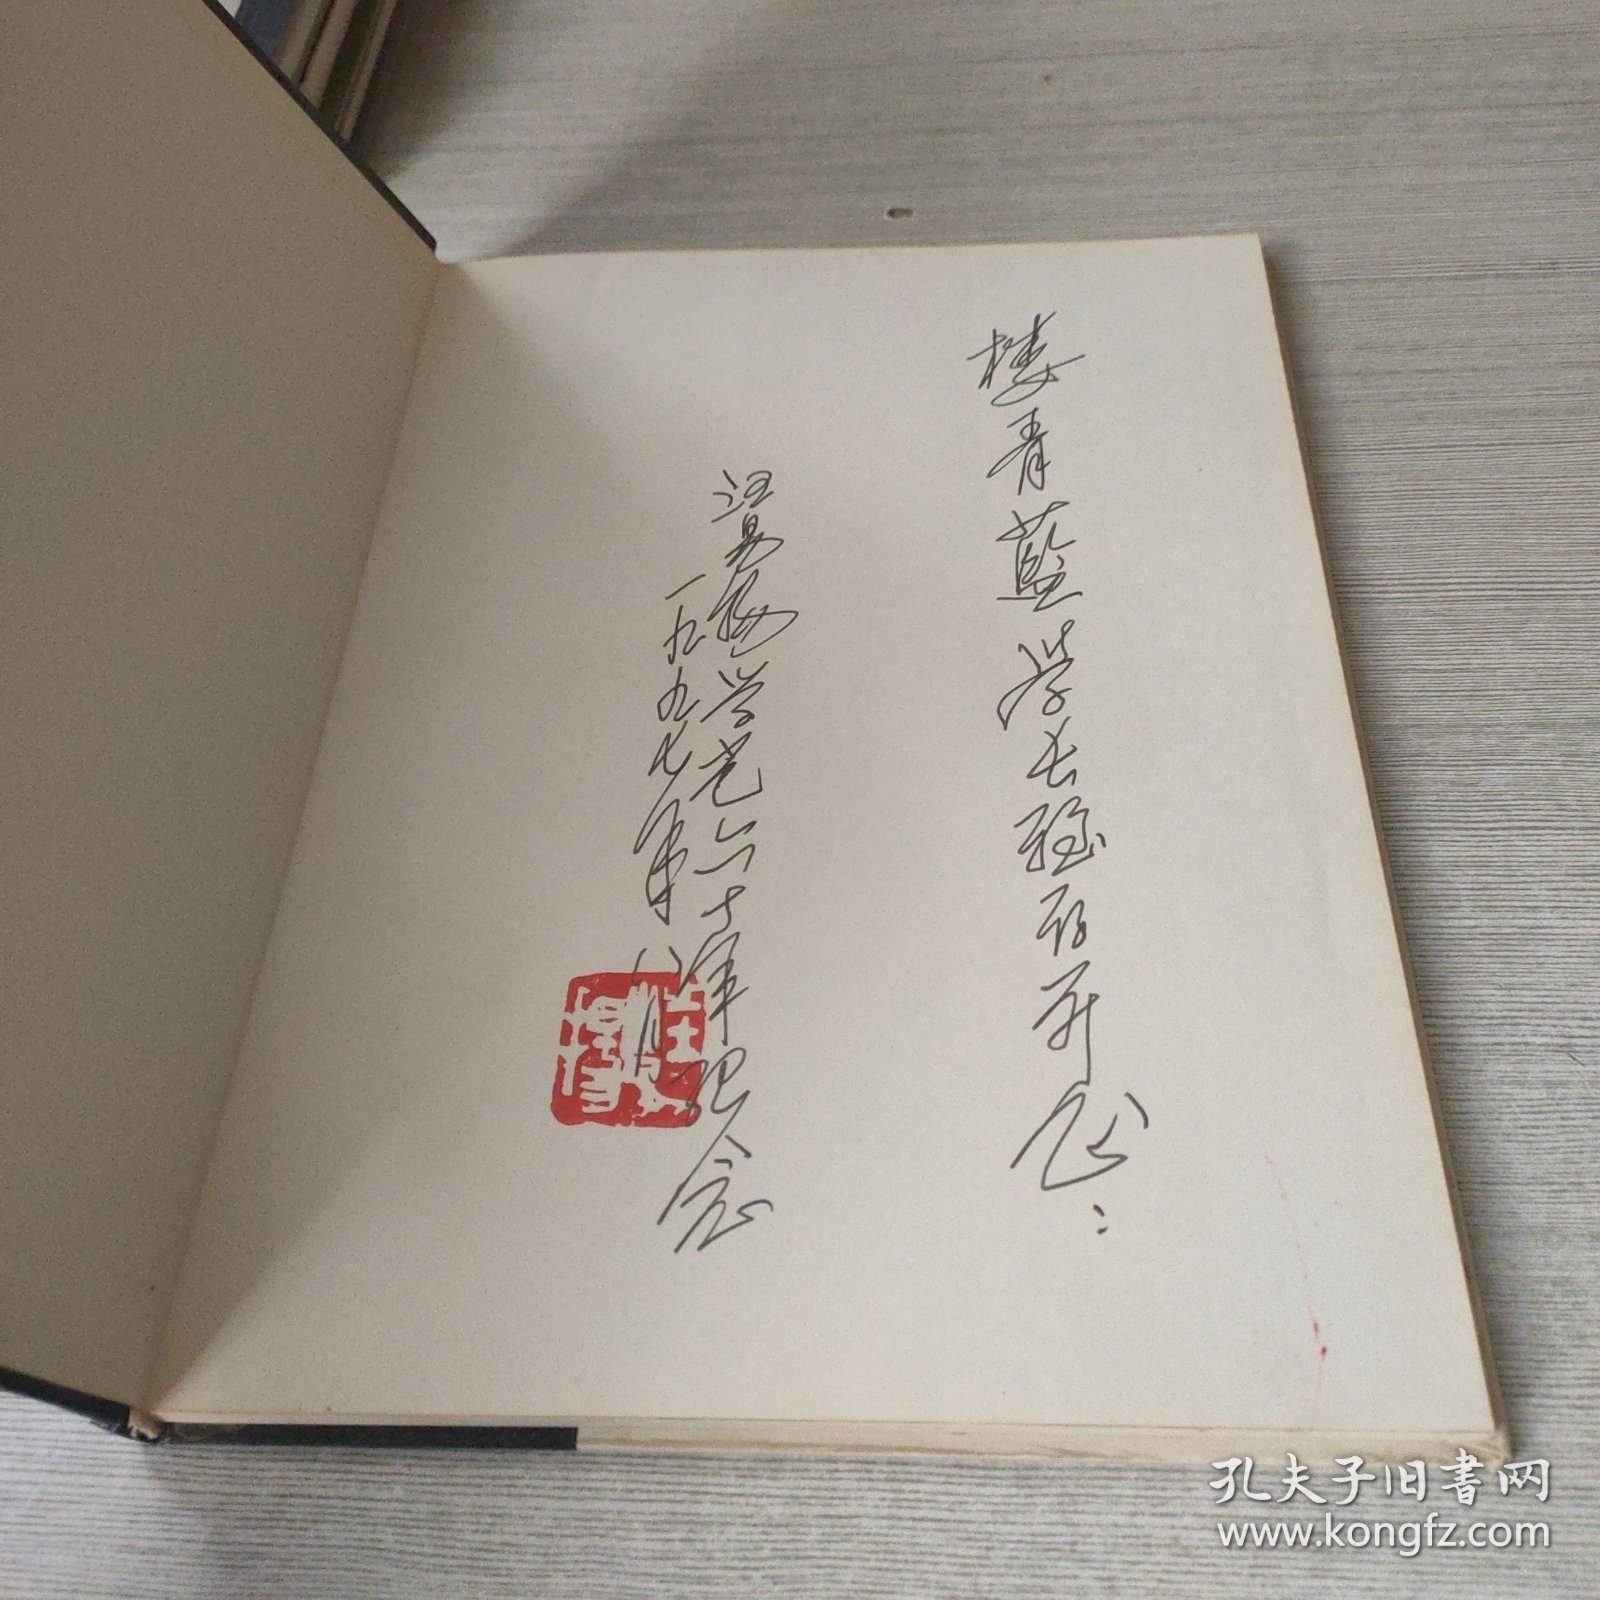 楼青蓝学长
汪易扬学艺六十年纪念
一九九七年八月
孔夫子旧书网
www.kongfz.com